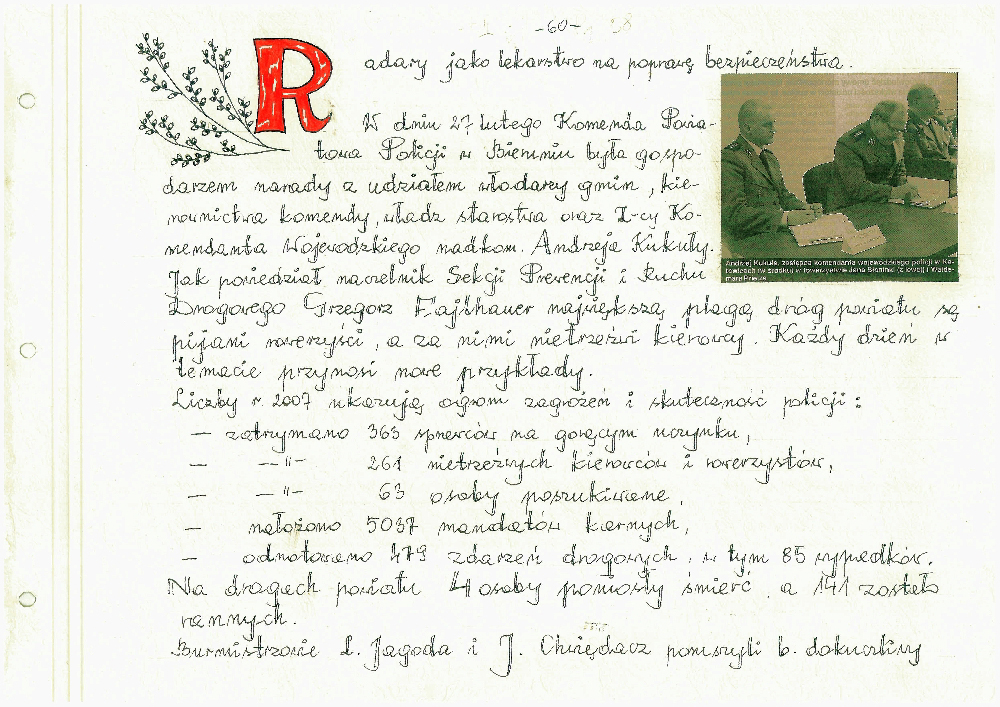 -60-
Radary jako lekarstwo na poprawę bezpieczeństwa.
W dniu 27 lutego Komenda Powia-
towa Policji w Bieruniu była gospo-
darzem narady z udziałem włodarzy gmin, kie-
rownictwa komendy, władz starostwa oraz Z-cy Ko-
mendanta Wojewódzkiego nadkom. Andrzeja Kukuły.
Jak powiedział naczelnik Sekcji Prewencji i Ruchu
Drogowego Grzegorz Fajlhauer największą plagą dróg powiatu są
pijani rowerzyści, a za nimi nietrzeźwi kierowcy. Każdy dzień w
temacie przynosi nowe przykłady.
Liczby r. 2007 ukazują ogrom zagrożeń i skuteczność policji:
— zatrzymano 363 sprawców na gorącym uczynku,
— —"— 261 nietrzeźwych kierowców i rowerzystów,
— —"— 63 osoby poszukiwane,
— nałożono 5037 mandatów karnych,
— odnotowano 479 zdarzeń drogowych, w tym 85 wypadków.
Na drogach powiatu 4 osoby poniosły śmierć, a 141 zostało
rannych.
Burmistrzowie L. Jagoda i J. Chwiędacz poruszyli b. dokuczliwy
Andrzej Kukuła, zastępca komendanta wojewódzkiego policji w Ka-
towicach (w środku) w towarzystwie Jana Słoniny (z lewej) i Walde-
mara